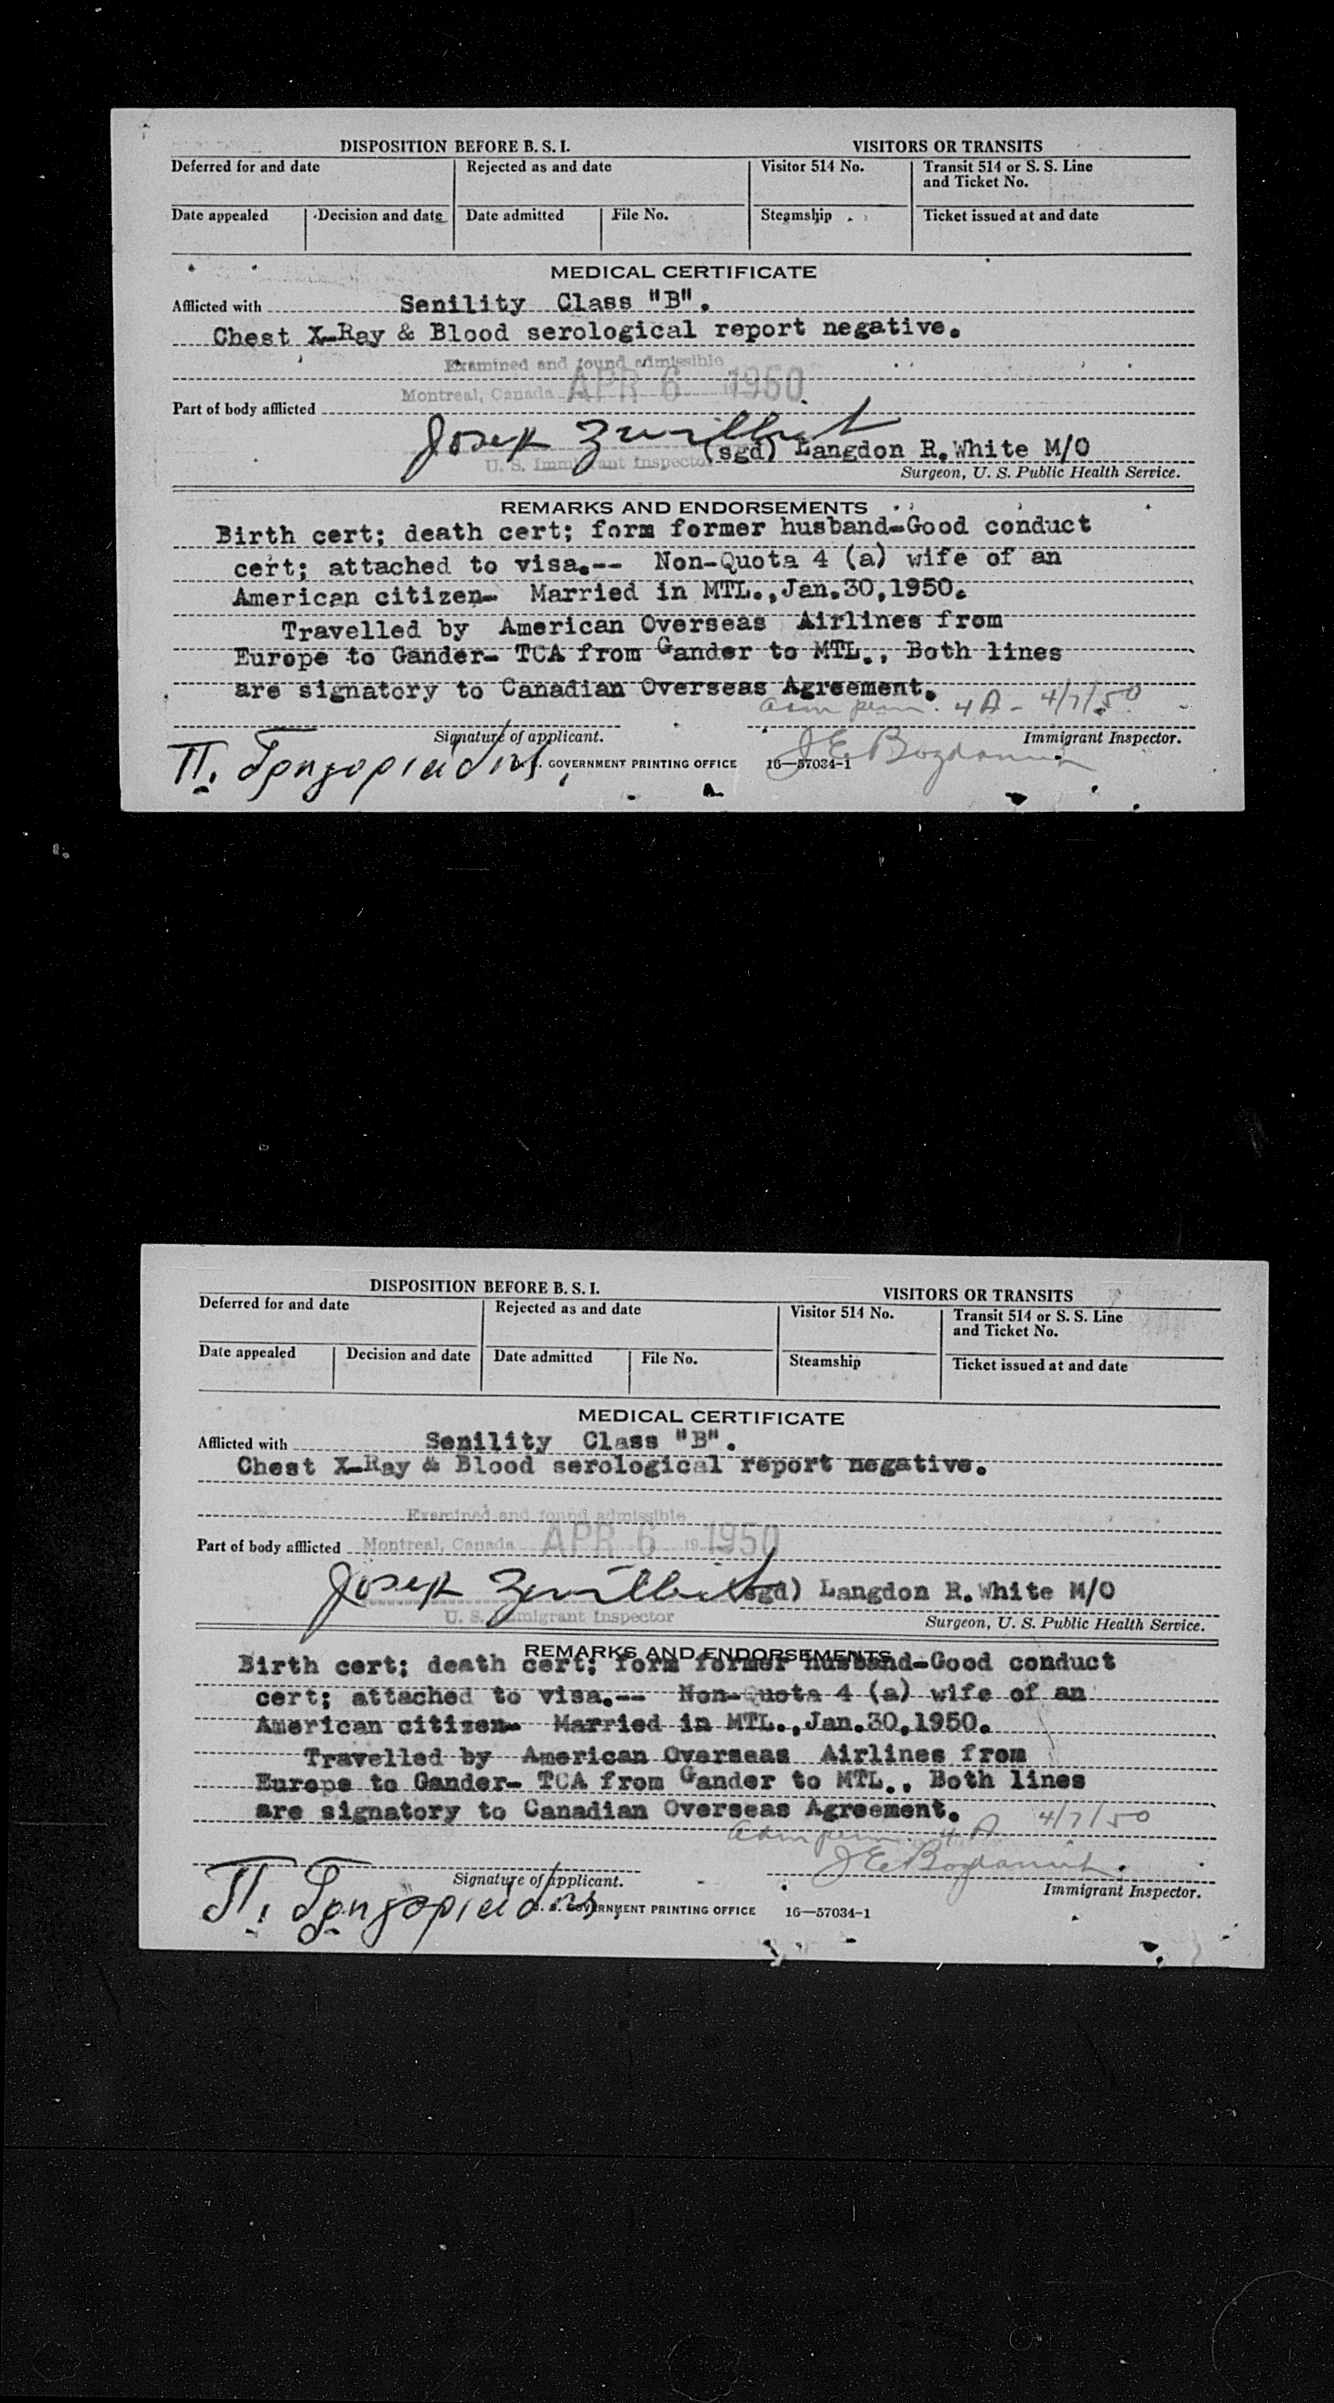 DISPOSITION BEFORE B. S. I.
VISITORS OR TRANSITS
Deferred for and date
Rejected as and date
Visitor 514 No.
Transit 514 or S. S. Line
and Ticket No.
Date appealed
Decision and date
Date admitted
File No.
Steamship
Ticket issued at and date
MEDICAL CERTIFICATE
Afflicted with Senility Class "B".
Chest X-Ray & Blood serological report negative.
Examined and found admissible
Montreal, Canada APR 6 1950
Part of body afflicted
Josep
(sgd) Langdon R. White M/O
U. S. Immigrant Inspector
Surgeon, U. S. Public Health Service.
REMARKS AND ENDORSEMENTS
Birth cert; death cert; form former husband-Good conduct
cert; attached to visa.-- Non-Quota 4 (a) wife of an
American citizen- Married in MTL.,Jan.30,1950.
Travelled by American Overseas Airlines from
Europe to Gander- TCA from Gander to MTL., Both lines
are signatory to Canadian Overseas Agreement.
adm perm. 4 A - 4/7/50
Signature of applicant.
Immigrant Inspector.
Π. Γρηγοριάδης
GOVERNMENT PRINTING OFFICE 16—57034-1
DISPOSITION BEFORE B. S. I.
VISITORS OR TRANSITS
Deferred for and date
Rejected as and date
Visitor 514 No.
Transit 514 or S. S. Line
and Ticket No.
Date appealed
Decision and date
Date admitted
File No.
Steamship
Ticket issued at and date
MEDICAL CERTIFICATE
Afflicted with Senility Class "B".
Chest X-Ray & Blood serological report negative.
Examined and found admissible
Part of body afflicted Montreal, Canada APR 6 19 1950
Josep
(sgd) Langdon R. White M/O
U. S. Immigrant Inspector
Surgeon, U. S. Public Health Service.
REMARKS AND ENDORSEMENTS
Birth cert; death cert; form former husband-Good conduct
cert; attached to visa.-- Non-Quota 4 (a) wife of an
American citizen- Married in MTL.,Jan.30,1950.
Travelled by American Overseas Airlines from
Europe to Gander- TCA from Gander to MTL., Both lines
are signatory to Canadian Overseas Agreement.
adm perm. 4 A 4/7/50
Signature of applicant.
Immigrant Inspector.
Π. Γρηγοριάδης
U. S. GOVERNMENT PRINTING OFFICE 16—57034-1